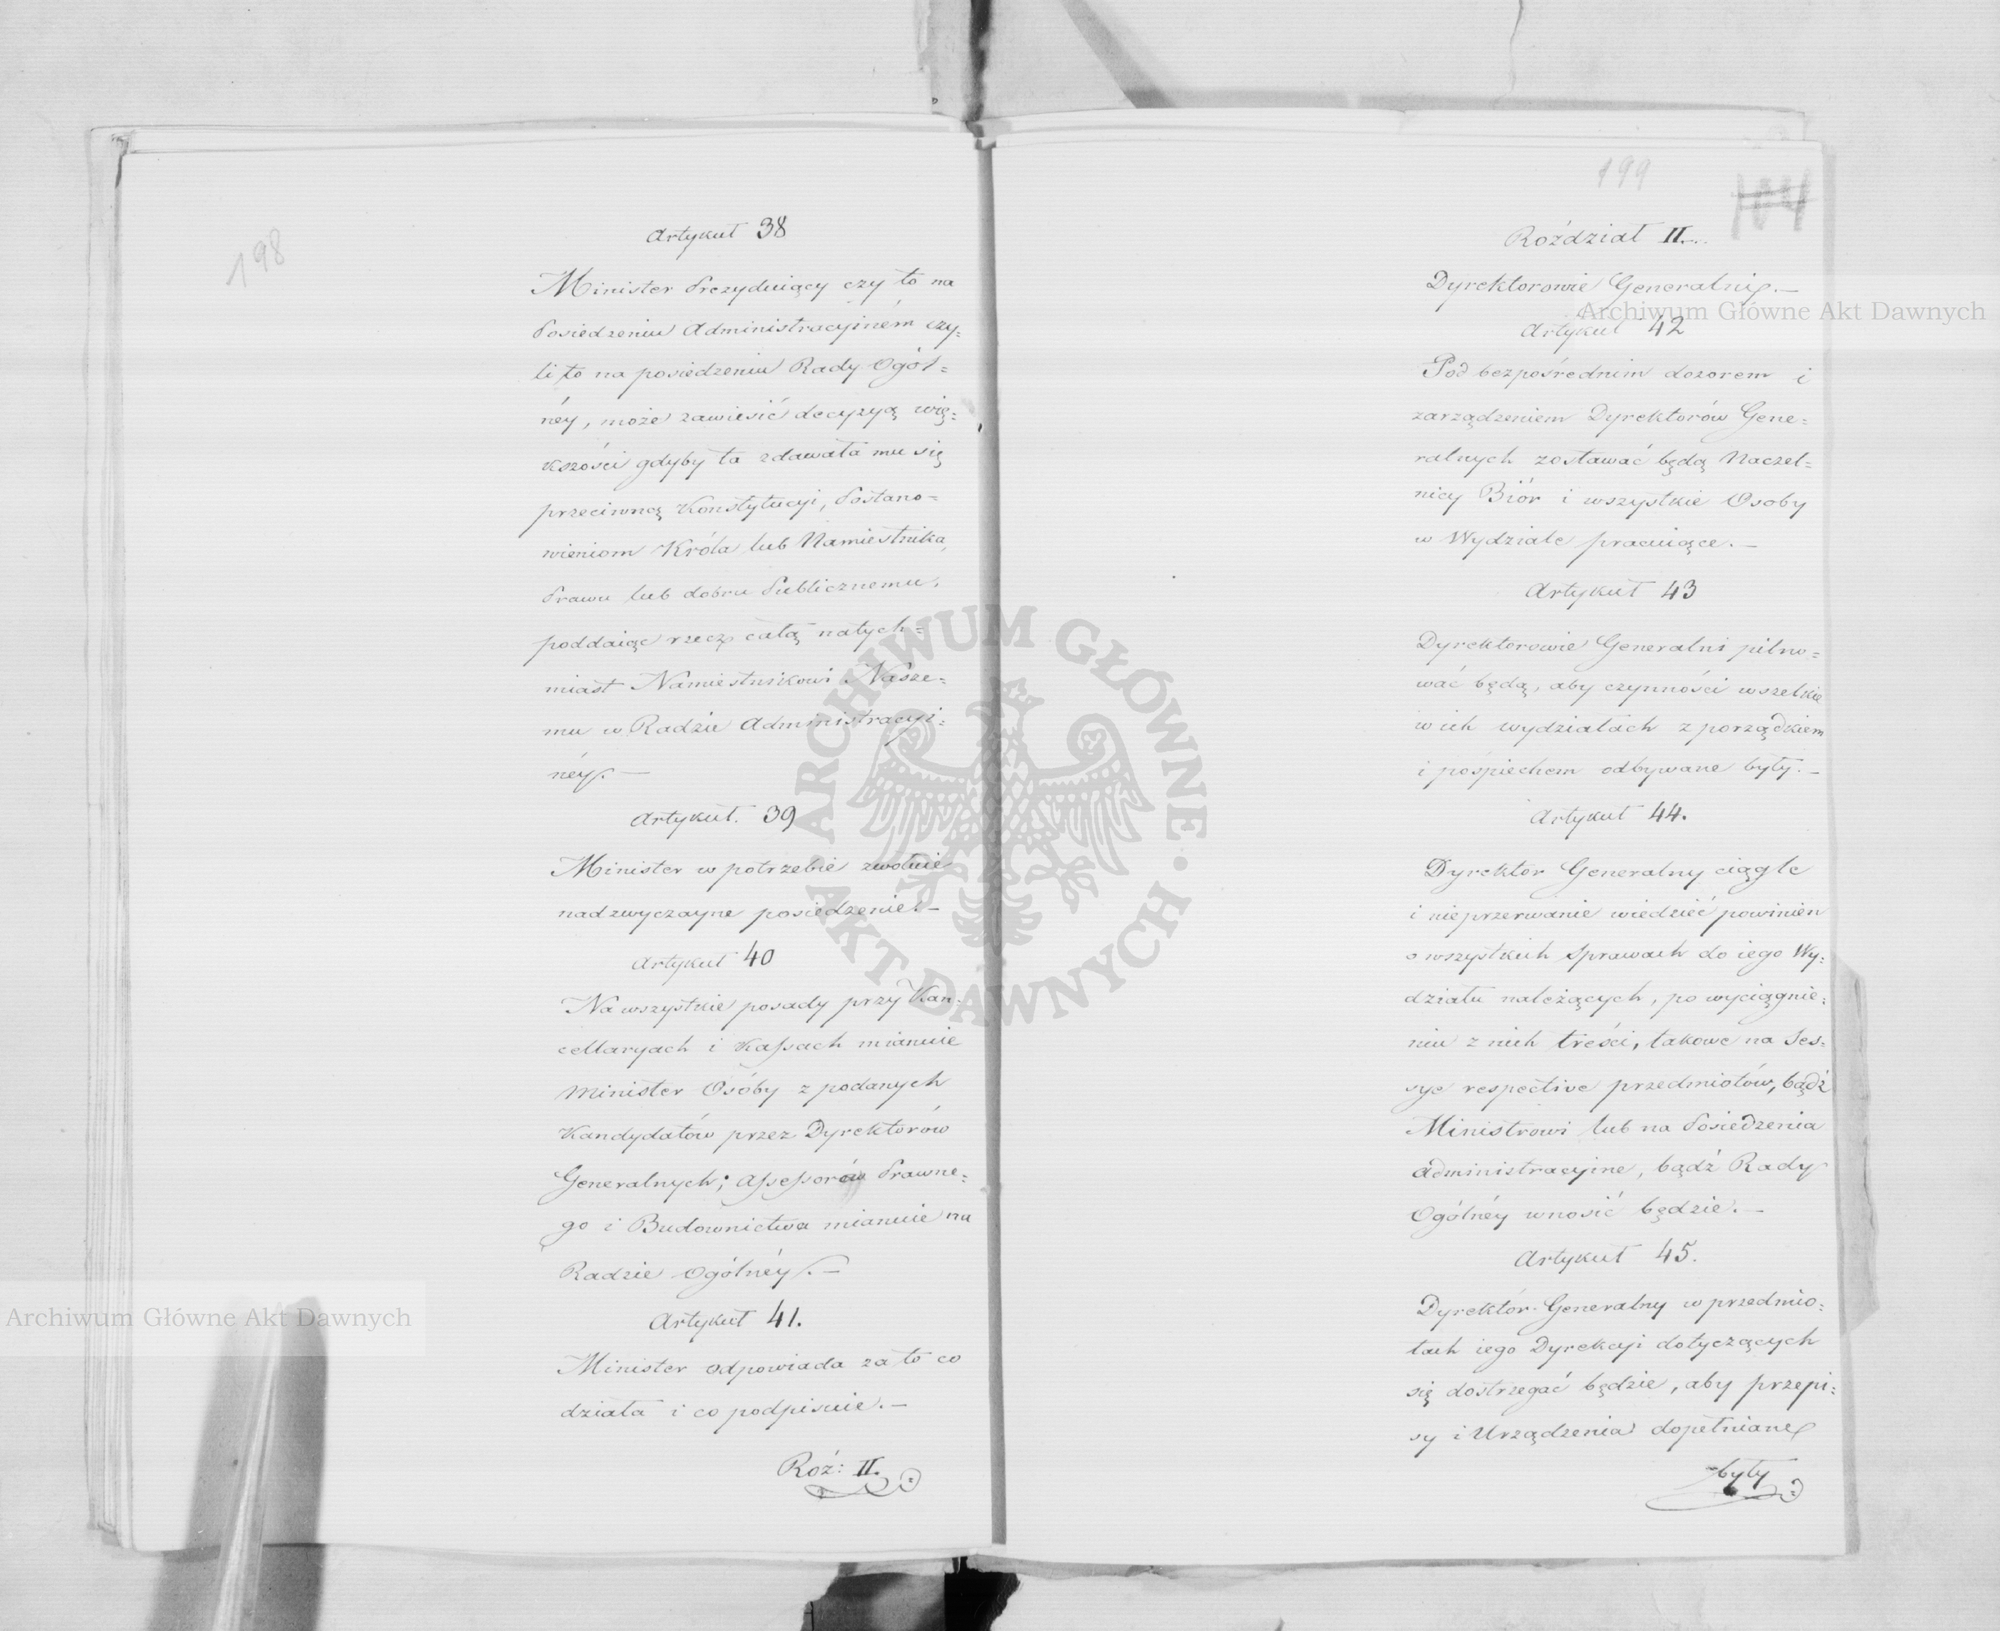 198
Artykuł 38
Minister Prezyduiący czy to na
Posiedzeniu Administracyiném czy-
li to na posiedzeniu Rady Ogól=
néy, może zawiesić decyzyą wię=
kszości gdyby ta zdawała mu się
przeciwną Konstytucyi, Postano=
wieniom Króla lub Namiestnika,
Prawu lub dobru Publicznemu,
poddaiąc rzecz całą natych=
miast Namiestnikowi Nasze=
mu w Radzie Administracyi=
néy. —
Artykuł. 39
Minister w potrzebie zwołuie
nadzwyczayne posiedzenie. —
Artykuł 40
Na wszystkie posady przy Kan=
cellaryach i Kassach mianuie
Minister Osóby z podanych
Kandydatów przez Dyrektorów
Generalnych; Assessorów Prawne=
go i Budownictwa mianuie na
Radzie Ogólnéy. —
Artykuł 41.
Minister odpowiada za to co
działa i co podpisuie. —
Roź: II.
199
104
Roździał II...
Dyrektorowie Generalni. —
Artykuł 42
Pod bezpośrednim dozorem i
zarządzeniem Dyrektorów Gene=
ralnych zostawać będą Naczel=
nicy Biór i wszystkie Osoby
w Wydziale pracuiące. —
Artykuł 43
Dyrektorowie Generalni pilno=
wać będą, aby czynności wszelkie
w ich wydziałach z porządkiem
i pośpiechem odbywane były. —
Artykuł 44.
Dyrektor Generalny ciągle
i nieprzerwanie wiedzieć powinien
o wszystkich sprawach do iego Wy=
działu należących, po wyciągnie=
niu z nich treści, takowe na Ses=
sye respective przedmiotów, bądź
Ministrowi lub na Posiedzenia
Administracyine, bądź Rady
Ogólnéy wnosić będzie. —
Artykuł 45.
Dyrektór Generalny w przedmio=
tach iego Dyrekcyi dotyczących
się dostrzegać będzie, aby przepi=
sy i Urządzenia dopełniane
były
Archiwum Główne Akt Dawnych
Archiwum Główne Akt Dawnych
ARCHIWUM GŁÓWNE
AKT DAWNYCH